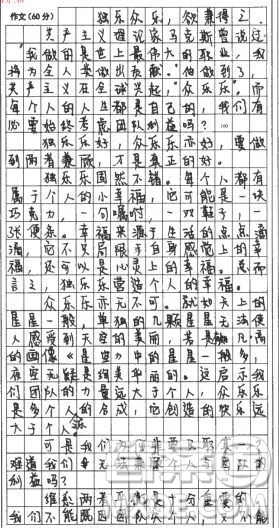 作文(60分)
独乐众乐，欲兼得之
共产主义理论家马克斯曾说过
"我做的是世上最伟大的职业，我
将为全人类做出贡献。"他做到了，
共产主义在全球兴起"众乐乐"。而
每个人的人生都是自己的，我们有
必要始终考虑团队利益吗？
独乐乐好，众乐乐亦好，要做
到两者兼顾，才是真正的好。
独乐乐固然不错。每个人都有
属于个人的小幸福，它可能是一块
巧克力，一句嘱咐，一双鞋子，一
张便条。幸福来源于生活的点点滴
滴，它不只局限于自身感觉上的幸
福，还可以是心灵上的幸福。总而
言之，独乐乐营造个人的幸福。
众乐乐亦无不可。就如天上的
星星一般，单独的几颗星星无法使
人感受到天空的美丽，若是像凡高
的画像《星空》中的星星一般多，
夜空无疑是绝美华丽的。这启示我
们团队的力量远大于个人，众乐乐
是多个人的合成，它创造的快乐远
大于个人。
可是我们
难道我们
利益吗？
维系两者平衡是十分重要的
我们不能